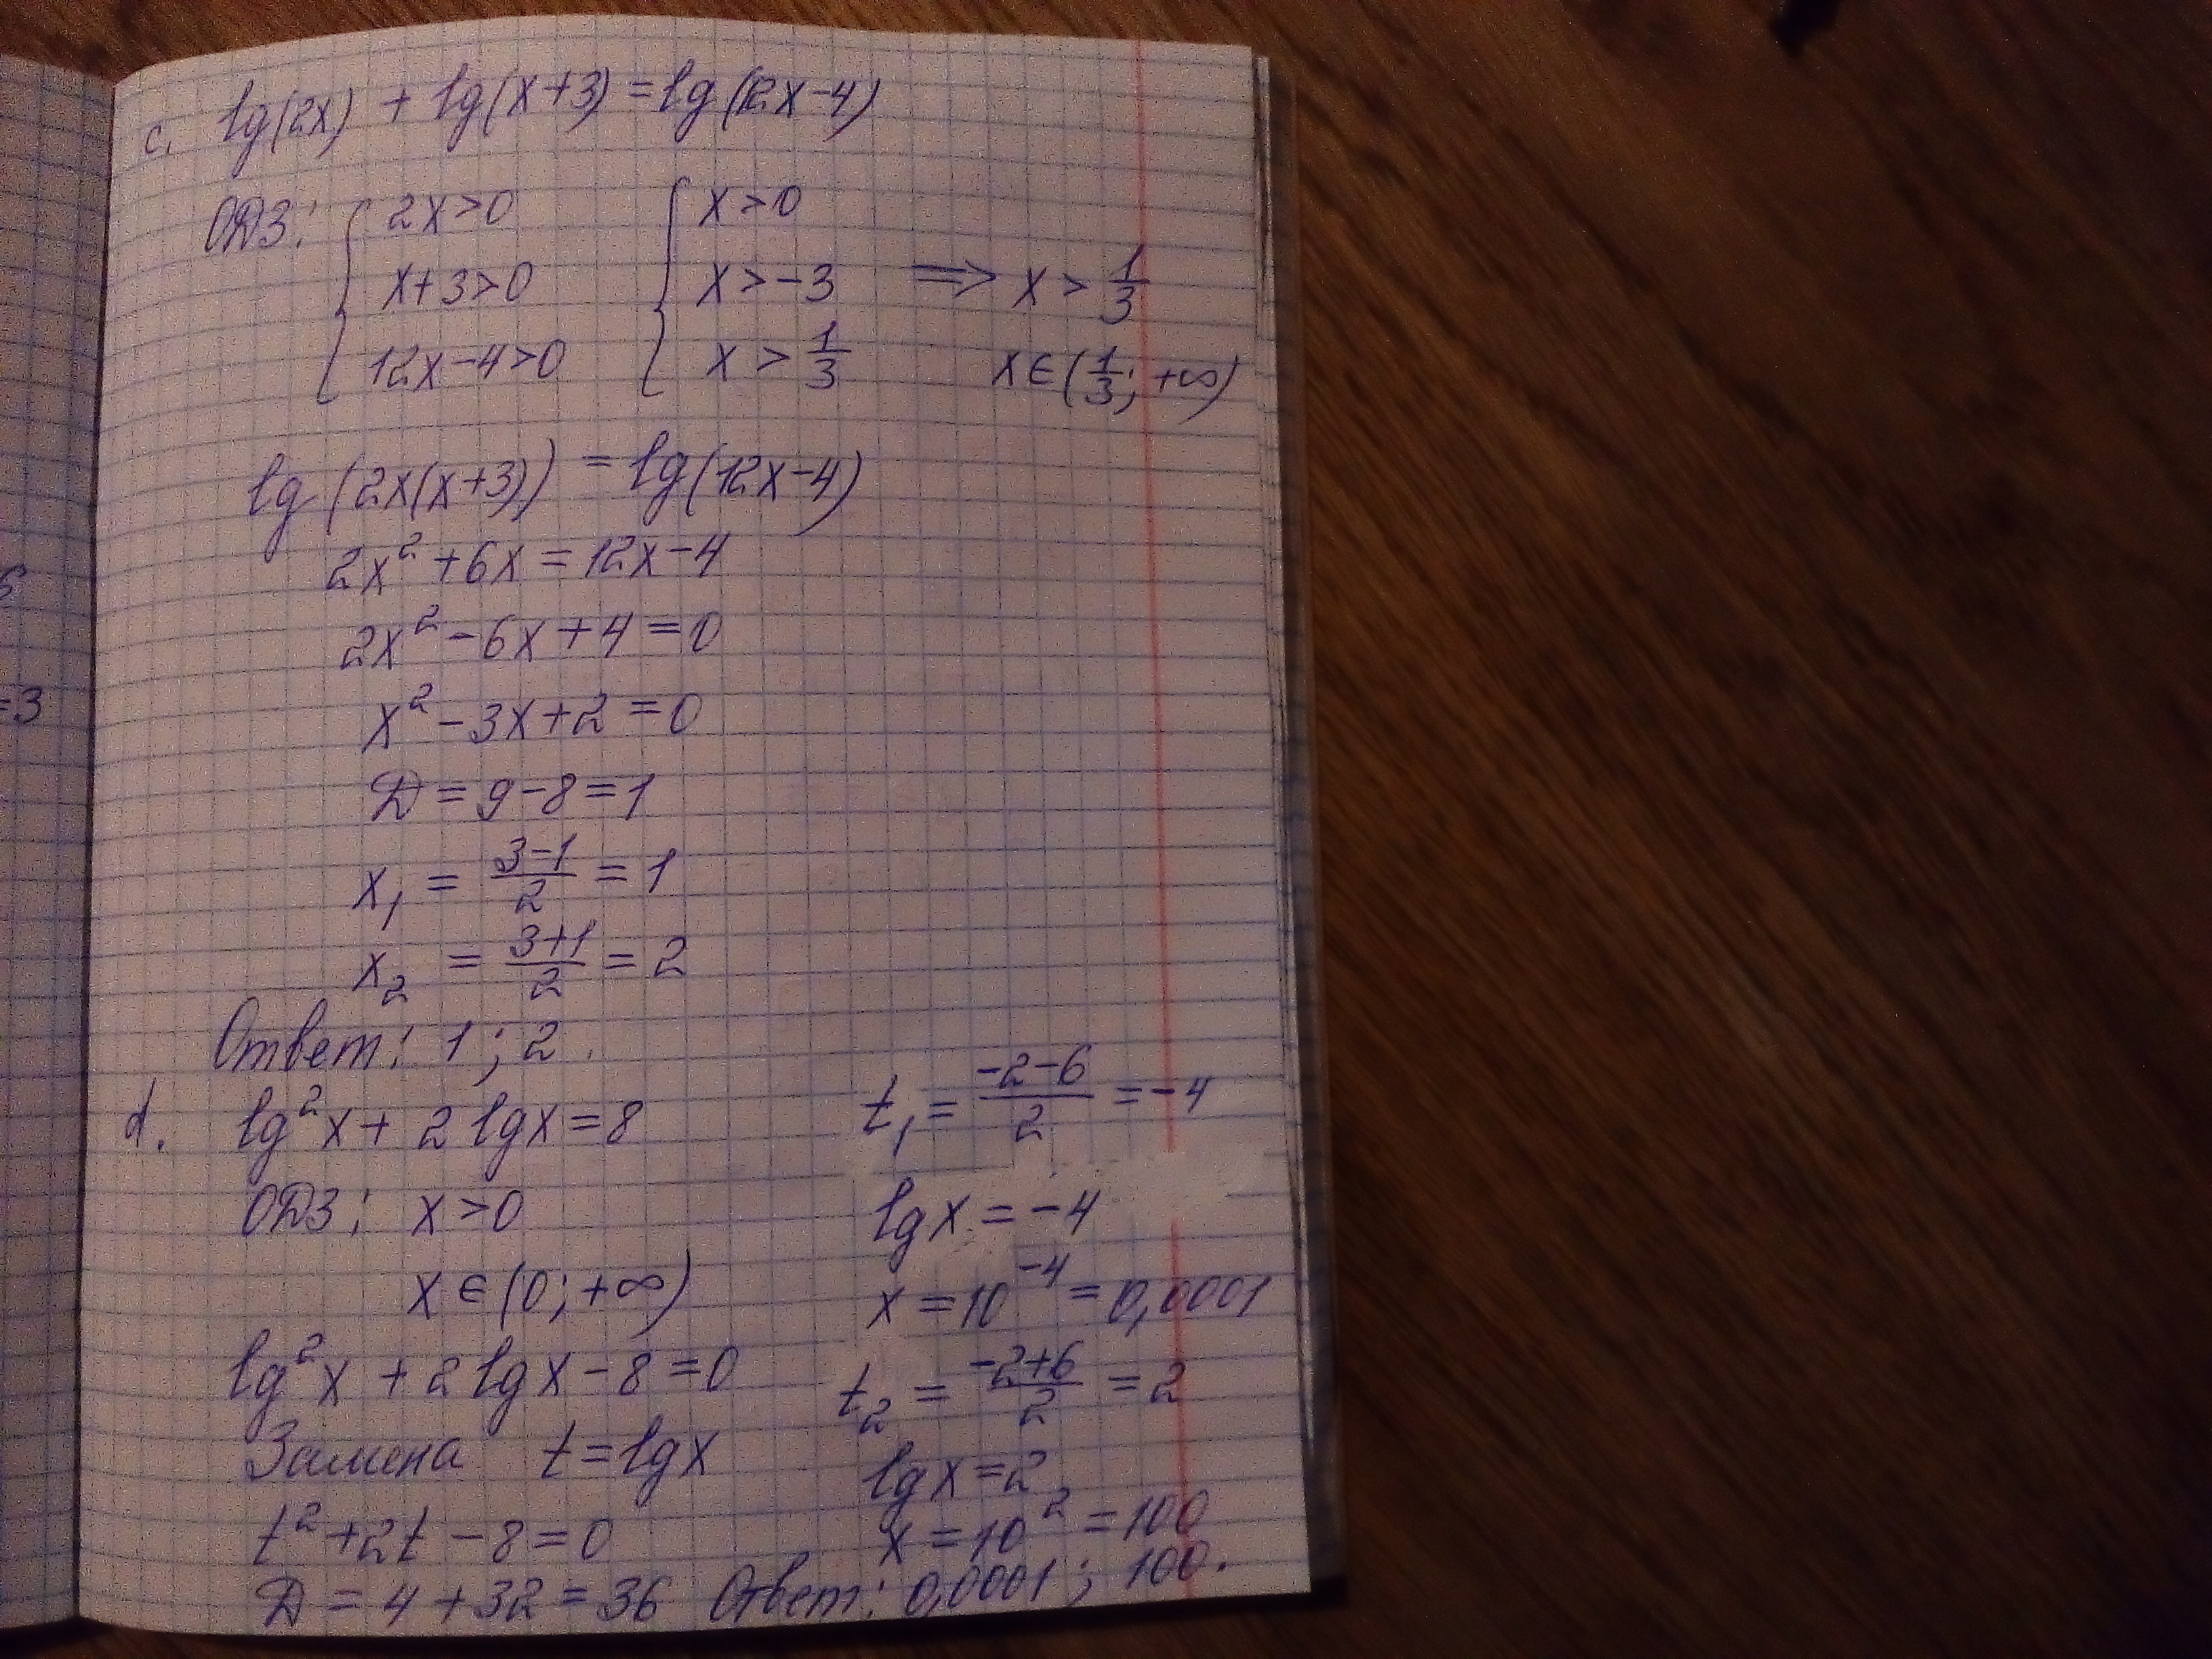 c. lg(2x) + lg(x+3) = lg(12x-4)
ОДЗ: { 2x>0 { x>0
x+3>0 x>-3 ⟹ x > 1/3
12x-4>0 x > 1/3 x∈(1/3; +∞)
lg(2x(x+3)) = lg(12x-4)
2x² + 6x = 12x-4
2x² - 6x + 4 = 0
x² - 3x + 2 = 0
D = 9-8 = 1
x₁ = (3-1)/2 = 1
x₂ = (3+1)/2 = 2
Ответ: 1; 2.
d. lg²x + 2 lgx = 8
ОДЗ: x>0
x∈(0; +∞)
lg²x + 2 lgx - 8 = 0
Замена t = lgx
t² + 2t - 8 = 0
D = 4 + 32 = 36
t₁ = (-2-6)/2 = -4
lgx = -4
x = 10⁻⁴ = 0,0001
t₂ = (-2+6)/2 = 2
lgx = 2
x = 10² = 100
Ответ: 0,0001; 100.
6
=3